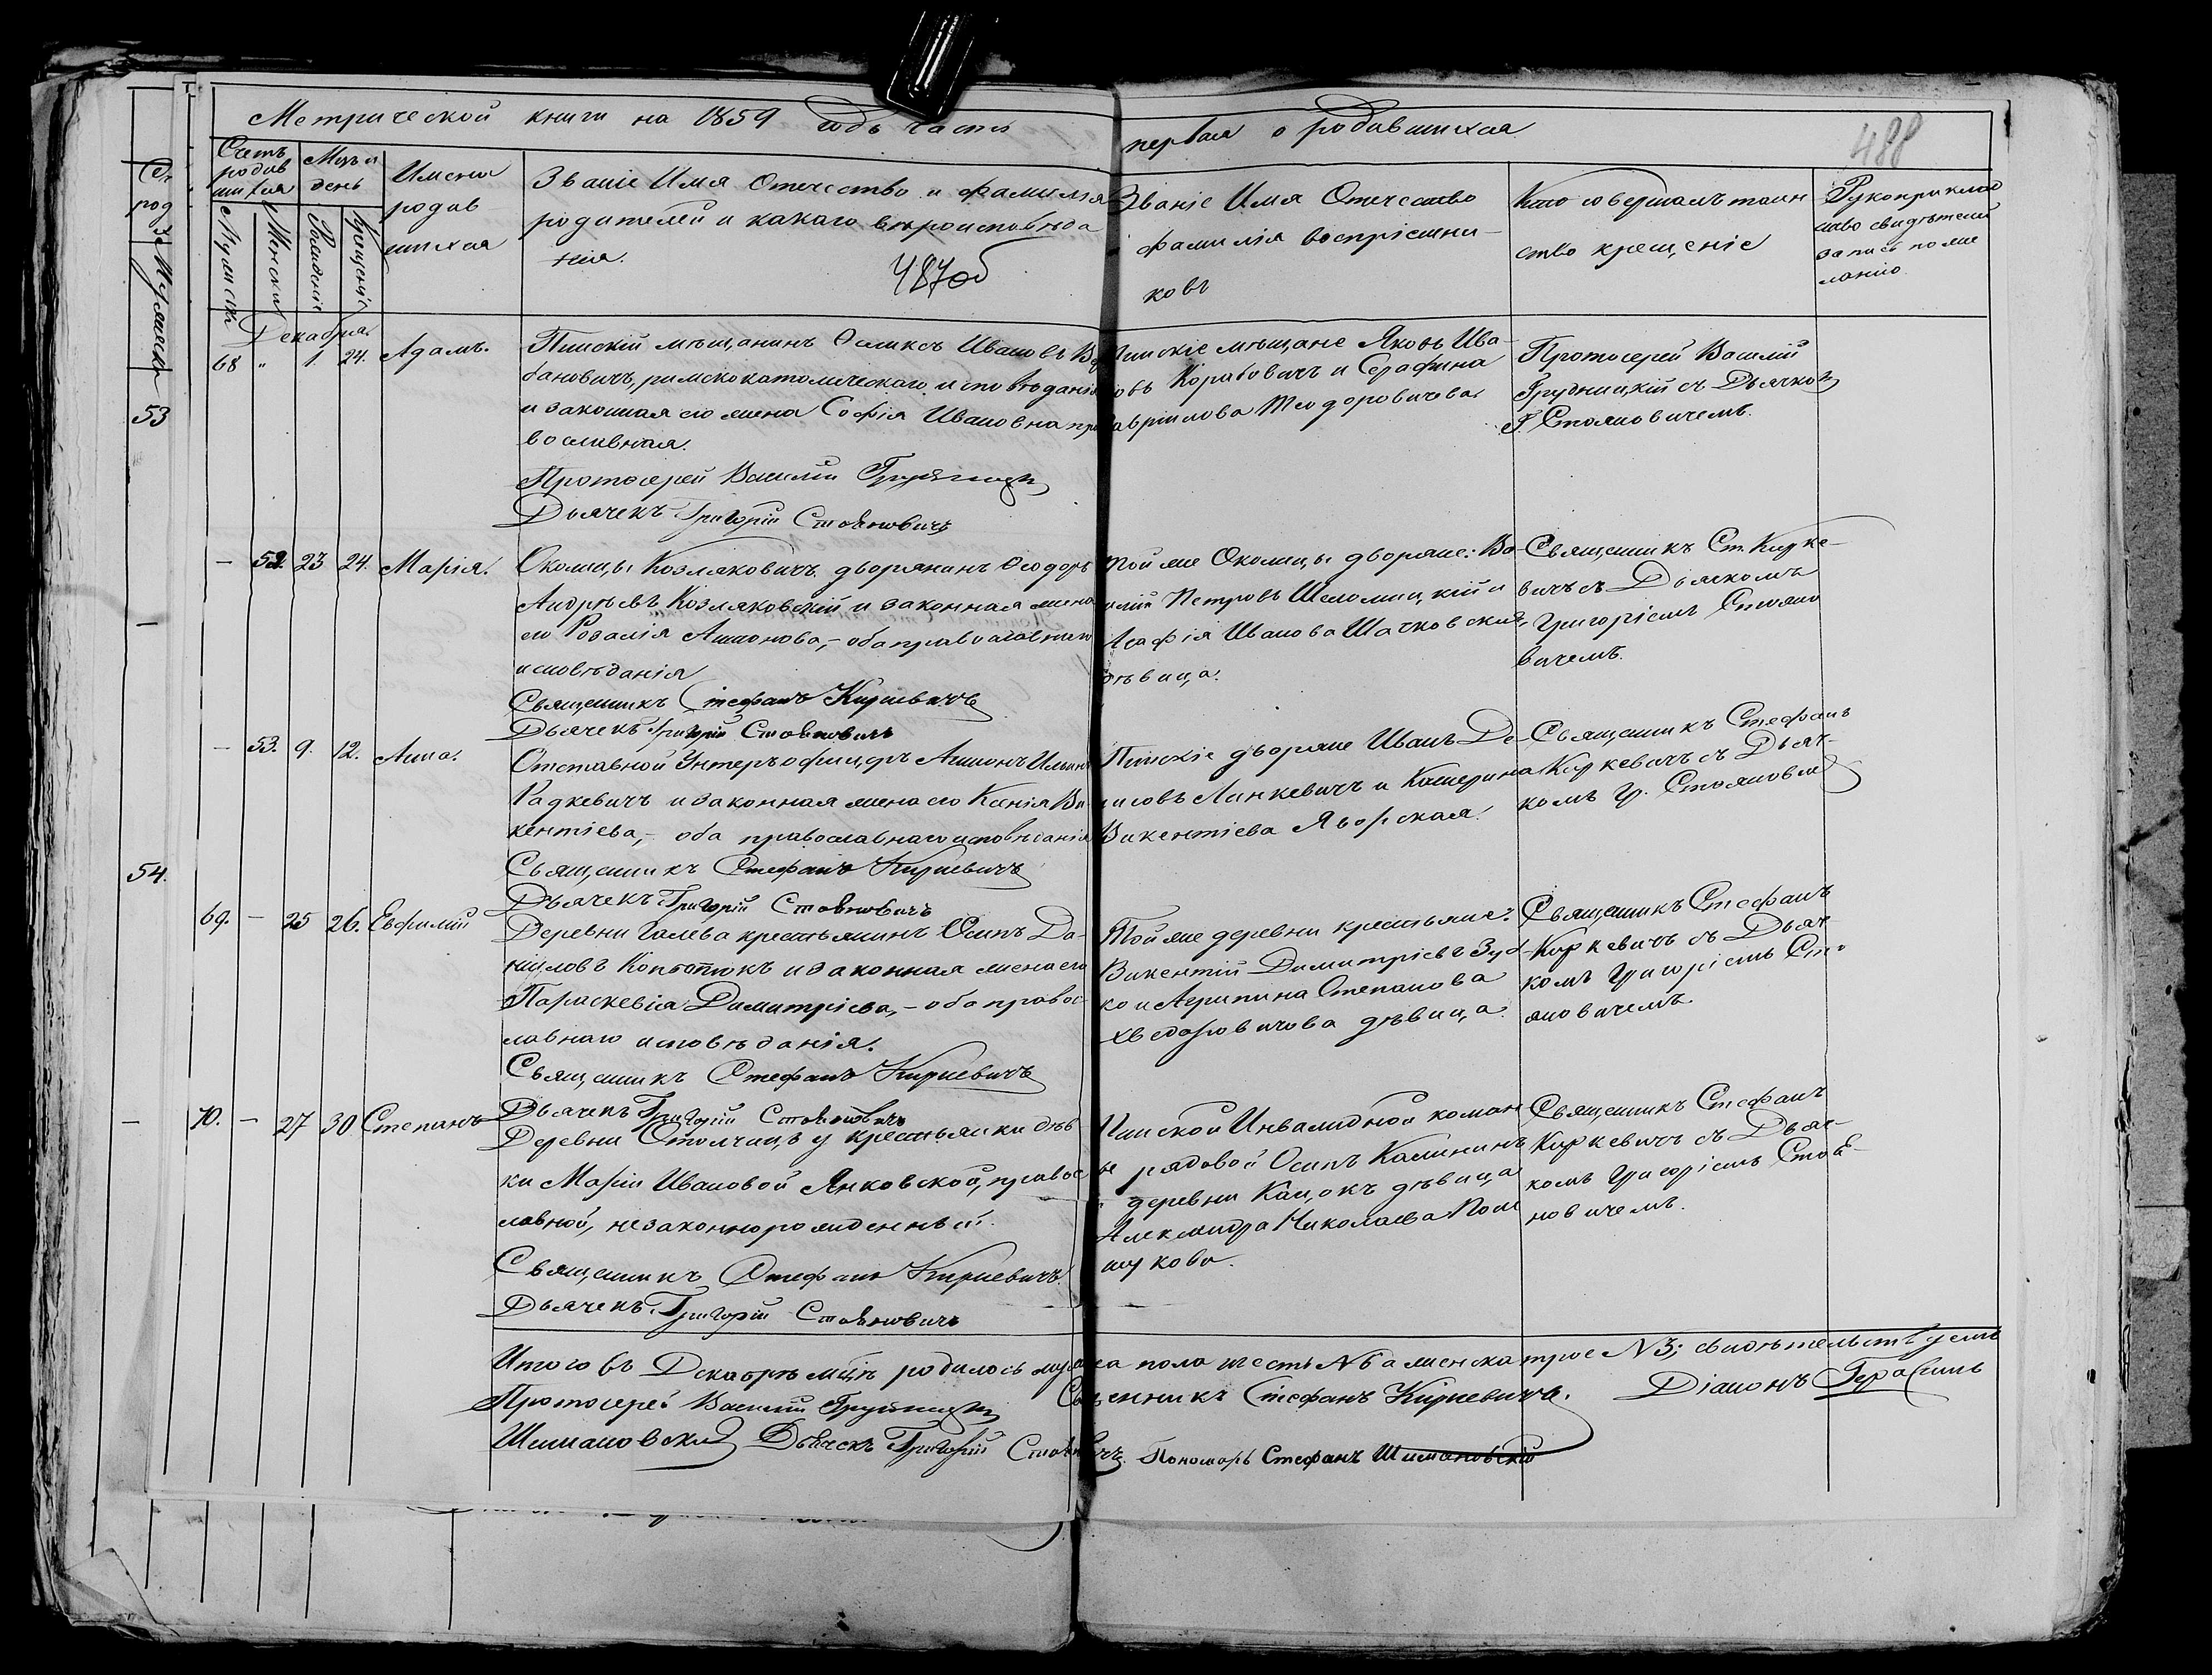 Метрической книги на 1859 годъ часть первая о родившихся
488
Счетъ родившихся
Мужска
Женска
Мѣц и день
Рожденія
Крещенія
Имена
родив
шихся
Званіе Имя Отечество и фамилія
родителей и какаго вѣроисповѣда
нія.
487об
Званіе Имя Отечество
фамилія воспріемни-
ковъ
Кто совершалъ таин
ство крещеніе
Рукоприклад
ство свидѣтелей
записи по же
ланію
53
54.
Декабря
68 " 1. 24. Адамъ.
Пинскій мѣщанинъ Феликсъ Ивановъ
бановичъ, римскокатолическаго исповѣданія
и законная его жена Софія Ивановна пра
вославная.
Протоіерей Василій Грудницкій
Дьячекъ Григорій Стояновичъ
Пинскіе мѣщане Яковъ Ива-
новъ Корабовичъ и Серафина
Гавріилова Теодоровичева
Протоіерей Василій
Грудницкій съ Дьячком
Г. Стояновичемъ.
— 52. 23 24. Марія.
Околицы Козляковичъ дворянинъ Феодоръ
Андрѣевъ Козляковскій и законная жена
его Розалія Антонова,- оба православнаго
исповѣданія
Священникъ Стефанъ Киркевичъ
Дьячекъ Григорій Стояновичъ
Той же Околицы дворяне: Ва-
силій Петровъ Шеломицкій и
Агафія Иванова Шачковская,
дѣвица.
Священникъ Ст. Кирке-
вичъ съ Дьячкомъ
Григоріемъ Стояно
вичемъ.
— 53. 9. 12. Анна.
Отставной Унтеръ офицеръ Антонъ Ильинъ
Радкевичъ и законная жена его Ксенія Ви
кентіева,- оба православнаго исповѣданія
Священникъ Стефанъ Киркевичъ
Дьячекъ Григорій Стояновичъ
Пинскіе дворяне Иванъ Де-
нисовъ Линкевичъ и Катерина
Викентіева Яворская.
Священникъ Стефанъ
Киркевичъ съ Дьяч-
комъ Гр. Стояновичем
69. — 25 26. Евфимій
Деревни Галева крестьянинъ Осипъ Да-
ниловъ Коптюкъ и законная жена его
Параскевія Димитріева,- оба правос-
лавнаго исповѣданія.
Священникъ Стефанъ Киркевичъ
Дьячекъ Григорій Стояновичъ
Той же деревни крестьяне:
Викентій Димитріевъ Зуб-
ко и Агрипина Степанова
Хведоровичова дѣвица.
Священникъ Стефанъ
Киркевичъ съ Дьяч-
комъ Григоріемъ Сто-
яновичемъ.
70. — 27 30 Степанъ
Деревни Столчицъ у крестьянки дѣв
ки Маріи Ивановой Янковской, правос
лавной, незаконнорожденный.
Священникъ Стефанъ Киркевичъ.
Дьячекъ Григорій Стояновичъ
Пинской Инвалидной коман
ды рядовой Осипъ Калининъ
и деревни Кацокъ дѣвица
Александра Николаева Пош
шукова.
Священникъ Стефанъ
Киркевичъ съ Дьяч-
комъ Григоріемъ Стоя-
новичемъ.
Итого въ Декабрѣ мцѣ родилось мужска пола шесть №6 а женска трое №3; свидѣтельствуемъ
Протоіерей Василій Грудницкій Священникъ Стефанъ Киркевичъ. Діаконъ Герасимъ
Шимановскій Дьячекъ Григорій Стояновичъ. Пономарь Стефанъ Шимановскій